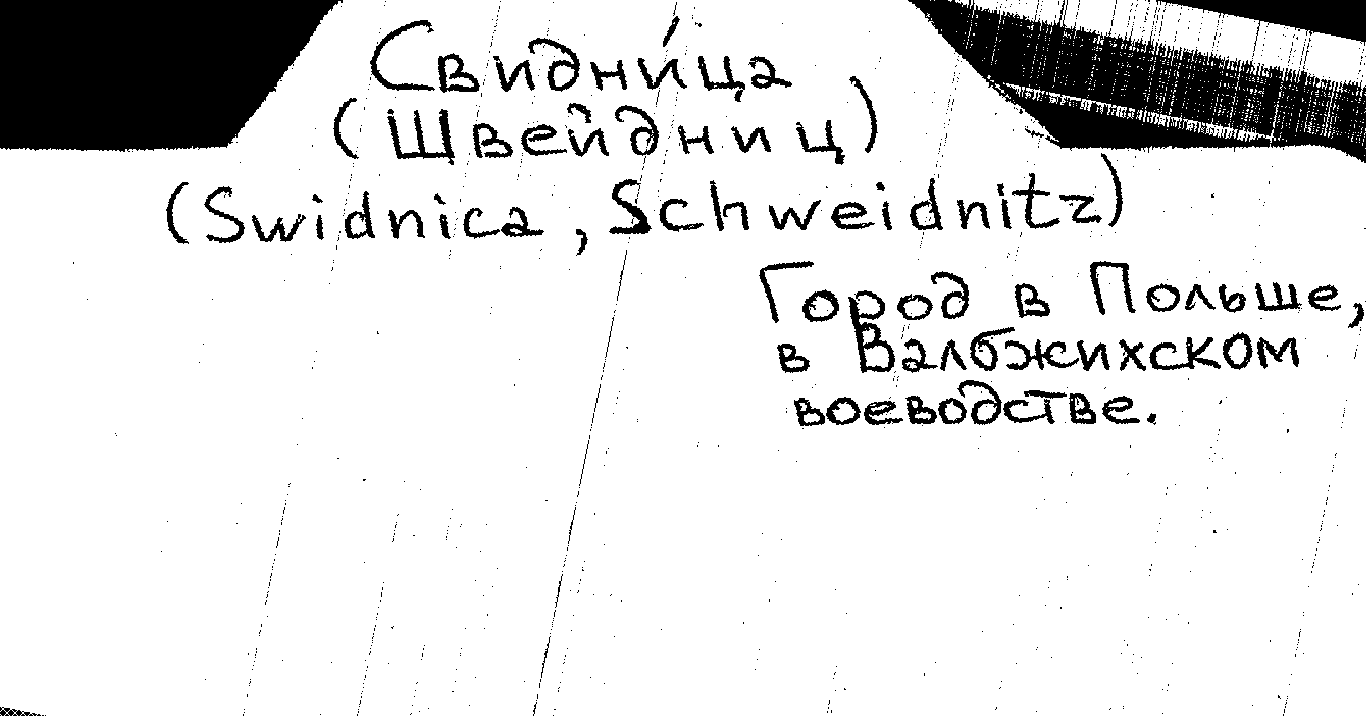 Свидни́ца
(Швейдниц)
(Swidnica, Schweidnitz)
Город в Польше,
в Валбжихском
воеводстве.